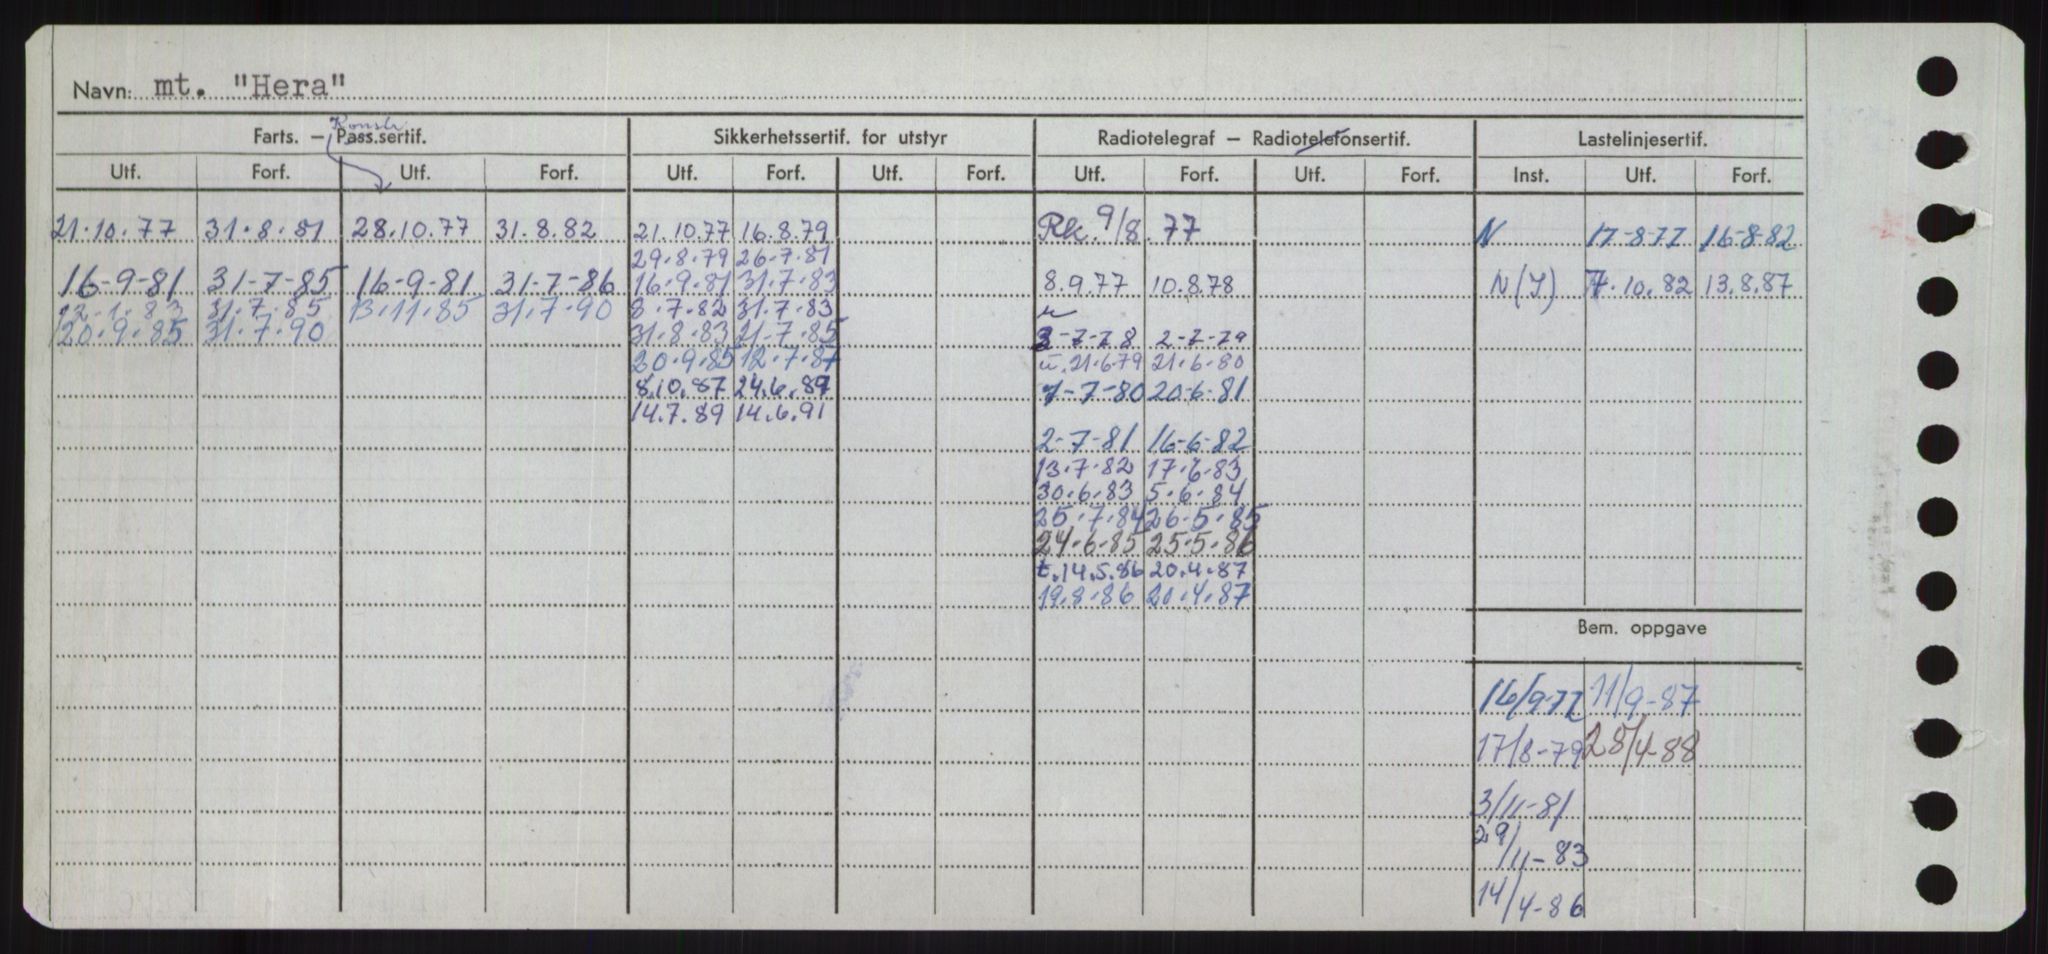 Navn: mt. "Hera"
Konstr
Farts. – Pass.sertif. Sikkerhetssertif. for utstyr Radiotelegraf – Radiotelefonsertif. Lastelinjesertif.
Utf. Forf. Utf. Forf. Utf. Forf. Utf. Forf. Utf. Forf. Utf. Forf. Inst. Utf. Forf.
21.10.77 31.8.81 28.10.77 31.8.82 21.10.77 16.8.79 Rk. 9/8.77 N 17-8-77 16-8-82
29.8.79 26.7.81
16-9-81 31-7-85 16-9-81 31-7-86 16.9.81 31.7.83 8.9.77 10.8.78 N(Y) 7.10.82 13.8.87
12.1.83 31.7.85 13.11.85 31.7.90 8.7.82 31.7.83
20.9.85 31.7.90 31.8.83 21.7.85 3-7-78 2-7-79
20.9.85 12.7.87 u.21.6.79 21.6.80
8.10.87 24.6.89 7-7-80 20-6-81
14.7.89 14.6.91
2-7-81 16-6-82
13.7.82 17.6.83
30.6.83 5.6.84
25.7.84 26.5.85
24.6.85 25.5.86
t.14.5.86 20.4.87
19.8.86 20.4.87
Bem. oppgave
16/9-77 11/9-87
17/8-79 28/4-88
3/11-81
29/11-83
14/4-86